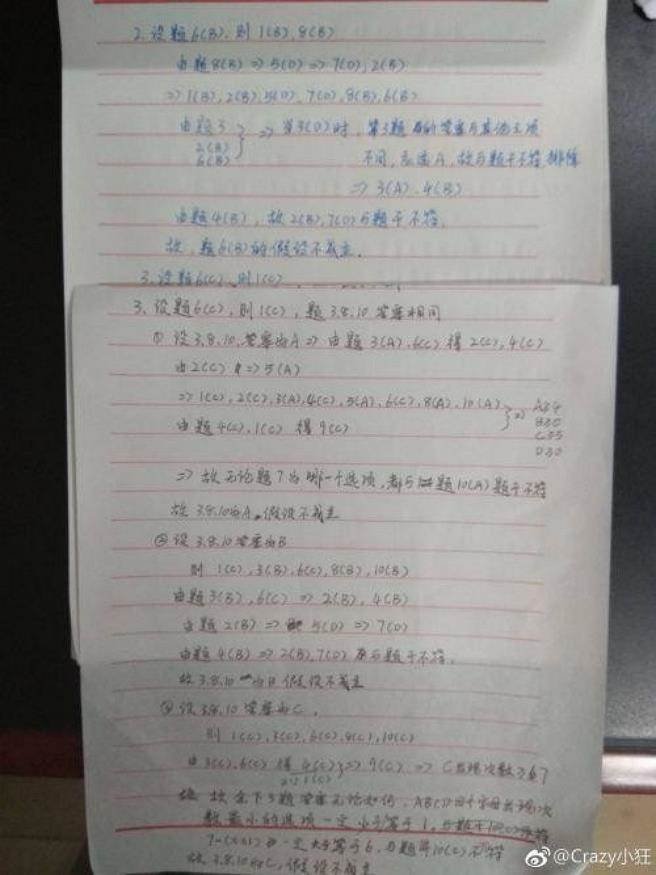 2. 设题6(B). 则 1(B), 8(B)
由题8(B) => 5(D) => 7(D), 2(B)
=> 1(B), 2(B), 5(D), 7(D), 8(B), 6(B)
由题3
2(B)
6(B)
} => 当3(D)时, 第3题 的答案与其他三项
不同, 应选A, 故与题干不符 排除
=> 3(A). 4(B)
由题4(B), 故2(B), 7(D)与题干不符.
故, 题6(B)的假设不成立.
3. 设题6(C), 则1(C)
3. 设题6(C), 则1(C), 题3.8.10 答案相同
① 设 3.8.10. 答案为A => 由题 3(A). 6(C) 得 2(C), 4(C)
由2(C) => 5(A)
=> 1(C), 2(C), 3(A), 4(C), 5(A), 6(C), 8(A), 10(A)
由题 4(C), 1(C) 得 9(C)
} =>
B30
D30
=> 故无论题7为哪一个选项, 都与题10(A)题干不符
故 3.8.10为A 假设不成立
② 设 3.8.10答案为B
则 1(C), 3(B), 6(C), 8(B), 10(B)
由题3(B), 6(C) => 2(B), 4(B)
由题 2(B) => 5(D) => 7(D)
由题 4(B) => 2(B), 7(D) 与题干不符.
故 3.8.10 为B 假设不成立
③ 设 3.8.10 答案为C.
则 1(C), 3(C), 6(C), 8(C), 10(C)
由 3(C), 6(C) 得 4(C) => 9(C) => C出现次数≥6 7
1(C)
故 余下3题答案无论如何, ABCD四个字母出现次
数最小的选项一定小于等于1,
一定大于等于6, 与题干10(C)不符
故 3.8.10为C, 假设不成立
@Crazy小狂